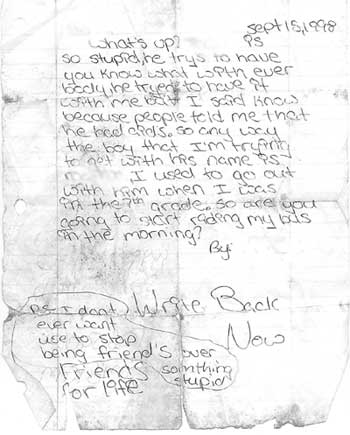 sept 15, 1998
what's up? is
so stupid, he trys to have
you know what with ever
body, he tryed to have it
with me but I said know
because people told me that
he had aids. so any way
the boy that I'm trying
to with his name is
I used to go out
with him when I was
in the 7th grade. so are you
going to start riding my bus
in the morning?
By:
Write Back
Now
P.S. I don't
ever want
use to stop
being friend's over
somthing
stupid
Friends
for life